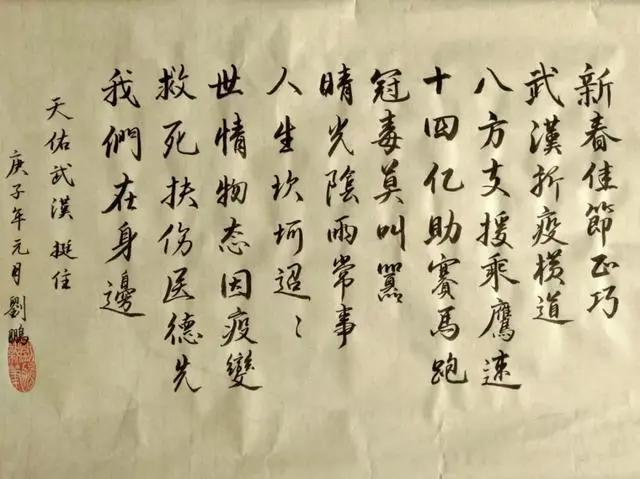 新春佳節正巧
武漢折疫横道
八方支援乘鷹速
十四亿助賽馬跑
冠毒莫叫囂
晴光陰雨常事
人生坎坷迢〻
世情物态因疫變
救死扶伤医德先
我們在身邊
天佑武漢 挺住
庚子年元月劉鵬